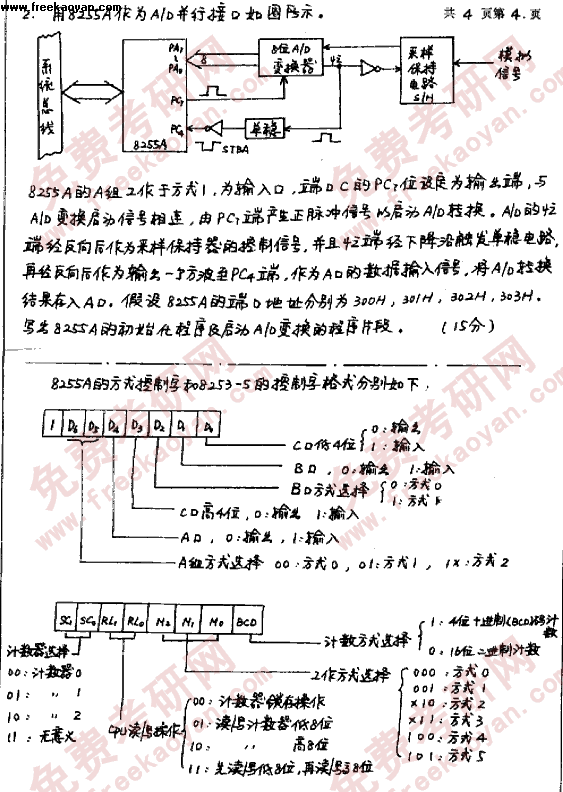 www.freekaoyan.com
2. 用8255A作为A/D并行接口如图所示。 共 4 页第 4. 页
系统总线
8255A
PA7
PA0
PC7
PC4
8
8位A/D变换器
忙
采样保持电路S/H
模拟信号
单稳
STBA
8255A的A组工作于方式1, 为输入口, 端口C的PC7位设定为输出端, 与
A/D变换启动信号相连, 由PC7端产生正脉冲信号以启动A/D转换。A/D的忙
端经反向后作为采样保持器的控制信号, 并且忙端经下降沿触发单稳电路,
再经反向后作为输出一个方波至PC4端, 作为A口的数据输入信号, 将A/D转换
结果存入A口。假设8255A的端口地址分别为300H, 301H, 302H, 303H.
写出8255A的初始化程序及启动A/D变换的程序片段。 (15分)
8255A的方式控制字和8253-5的控制字格式分别如下:
1 D6 D5 D4 D3 D2 D1 D0
C口低4位 0:输出
1:输入
B口, 0:输出 1:输入
B口方式选择 0:方式0
1:方式1
C口高4位, 0:输出 1:输入
A口, 0:输出, 1:输入
A组方式选择 00:方式0, 01:方式1, 1x:方式2
SC1 SC0 RL1 RL0 M2 M1 M0 BCD
计数方式选择 1:4位十进制(BCD)码计数
0:16位二进制计数
计数器选择
00:计数器0
01: 〃 1
10: 〃 2
11:无意义
工作方式选择
000:方式0
001:方式1
x10:方式2
x11:方式3
100:方式4
101:方式5
CPU读/写操作
00:计数器锁存操作
01:读/写计数器低8位
10: 〃 高8位
11:先读/写低8位,再读/写高8位
免费考研网
www.freekaoyan.com